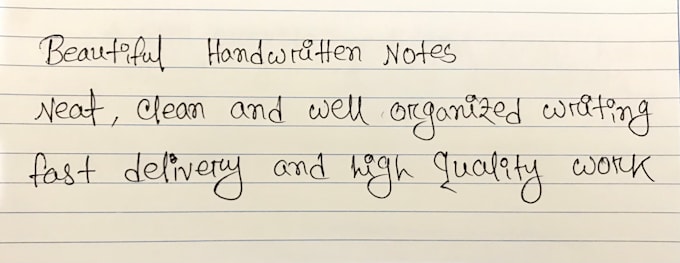 Beautiful Handwritten Notes
Neat, Clean and well organized writing
fast delivery and high quality work